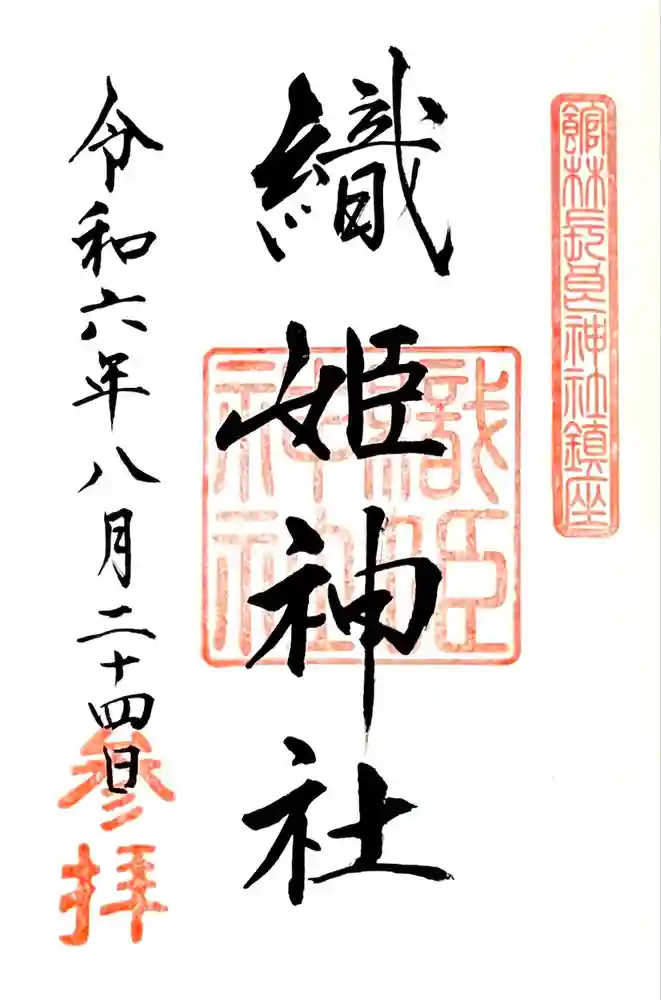 館林長良神社鎮座
織姫神社
織姫
神社
令和六年八月二十四日
参拝